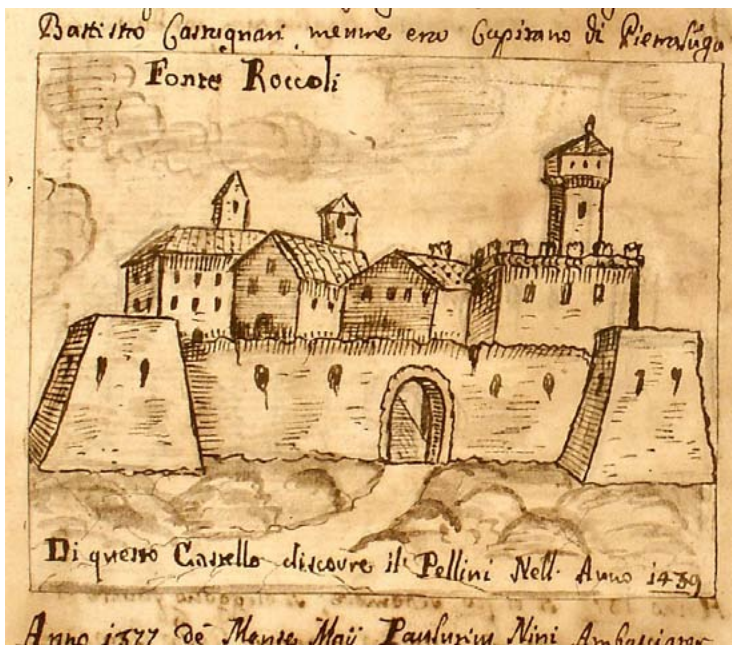 Battistro Castrignani mentre era Capitano di Pietralunga
Fonte Roccoli
Di questo Castello discorre il Pellini Nell. Anno 1439
Anno 1377 de Mense Maÿ Paulutius Nini Ambasciator